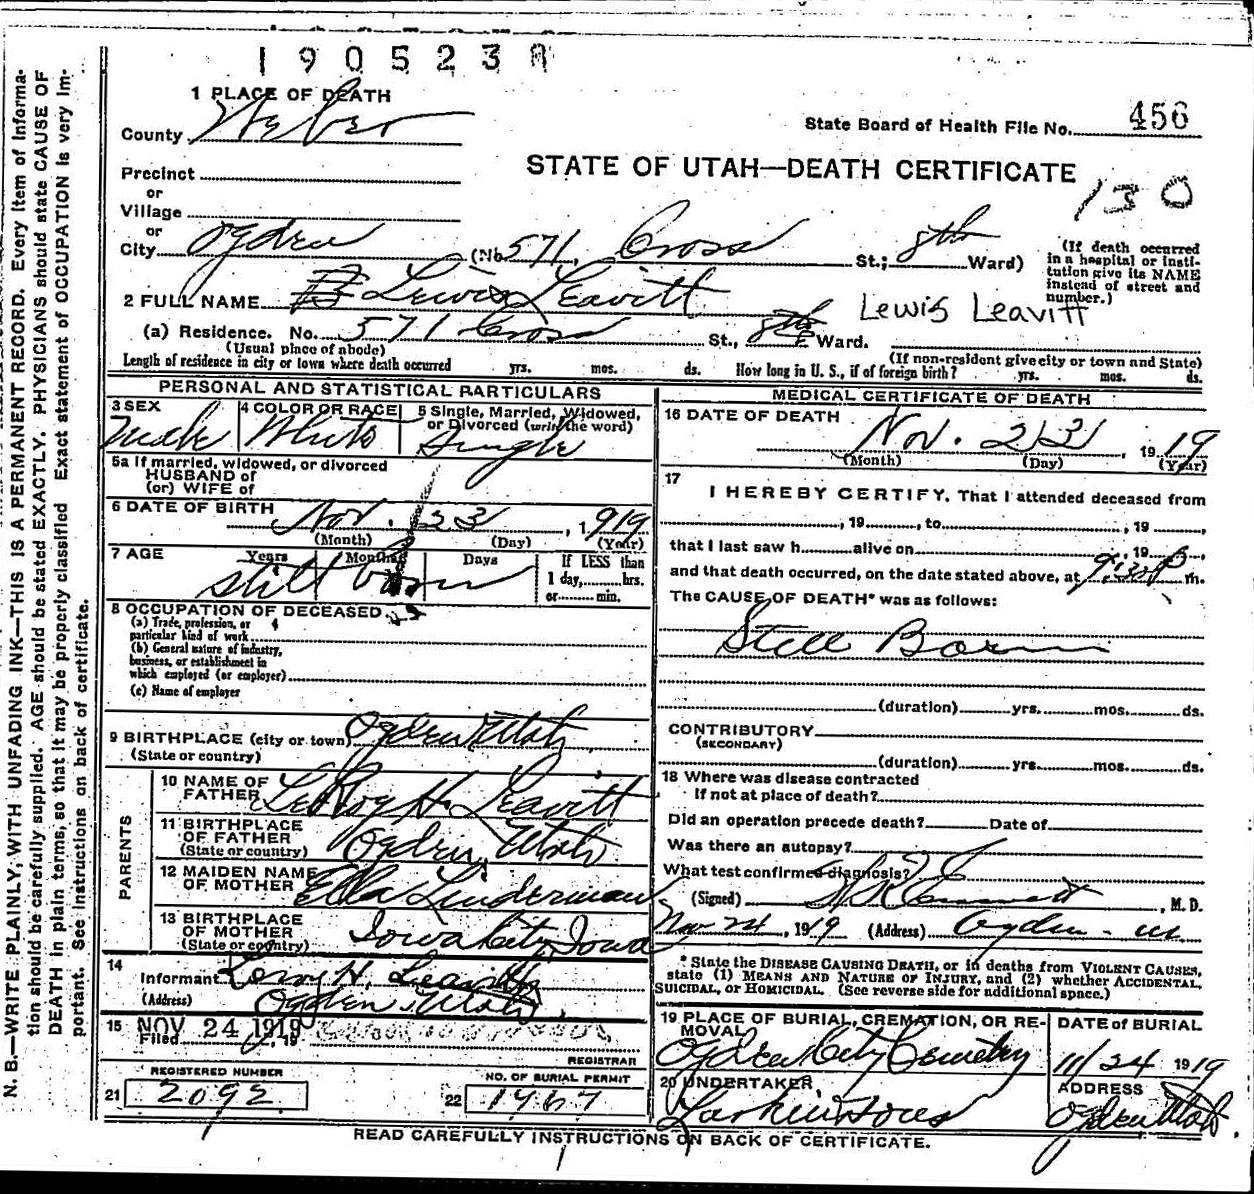 1905238
1 PLACE OF DEATH
County Weber
State Board of Health File No. 456
STATE OF UTAH—DEATH CERTIFICATE
130
Precinct
or
Village
or
City Ogden (No 571, Cross St.; 8th Ward)
(If death occurred in a hospital or institution give its NAME instead of street and number.)
2 FULL NAME Lewis Leavitt
Lewis Leavitt
(a) Residence. No. 571 Cross St., 8th Ward.
(Usual place of abode)
(If non-resident give city or town and State)
Length of residence in city or town where death occurred yrs. mos. ds. How long in U. S., if of foreign birth? yrs. mos. ds.
PERSONAL AND STATISTICAL PARTICULARS
3 SEX Male
4 COLOR OR RACE White
5 Single, Married, Widowed, or Divorced (write the word) Single
5a If married, widowed, or divorced
HUSBAND of
(or) WIFE of
6 DATE OF BIRTH Nov. 23, 1919
(Month) (Day) (Year)
7 AGE Years Months Days If LESS than
1 day, hrs.
or min.
still born
8 OCCUPATION OF DECEASED
(a) Trade, profession, or
particular kind of work
(b) General nature of industry,
business, or establishment in
which employed (or employer)
(c) Name of employer
9 BIRTHPLACE (city or town) Ogden Utah
(State or country)
PARENTS
10 NAME OF FATHER LeRoy H. Leavitt
11 BIRTHPLACE OF FATHER Ogden, Utah
(State or country)
12 MAIDEN NAME OF MOTHER Ella Linderman
13 BIRTHPLACE OF MOTHER Iowa City, Iowa
(State or country)
14 Informant Leroy H. Leavitt
(Address) Ogden, Utah
15 NOV 24 1919
Filed , 19
REGISTRAR
REGISTERED NUMBER
21 2092
NO. OF BURIAL PERMIT
22 1967
MEDICAL CERTIFICATE OF DEATH
16 DATE OF DEATH Nov. 23, 1919
(Month) (Day) (Year)
17
I HEREBY CERTIFY, That I attended deceased from
, 19 , to , 19 ,
that I last saw h alive on , 19 ,
and that death occurred, on the date stated above, at 9:30 P m.
The CAUSE OF DEATH* was as follows:
Still Born
(duration) yrs. mos. ds.
CONTRIBUTORY
(SECONDARY)
(duration) yrs. mos. ds.
18 Where was disease contracted
If not at place of death?
Did an operation precede death? Date of
Was there an autopsy?
What test confirmed diagnosis?
(Signed) , M. D.
Nov 24, 1919 (Address) Ogden - Ut
* State the DISEASE CAUSING DEATH, or in deaths from VIOLENT CAUSES,
state (1) MEANS AND NATURE OF INJURY, and (2) whether ACCIDENTAL,
SUICIDAL, or HOMICIDAL. (See reverse side for additional space.)
19 PLACE OF BURIAL, CREMATION, OR REMOVAL
Ogden City Cemetery
DATE of BURIAL
11/24 1919
20 UNDERTAKER
Larkin & Sons
ADDRESS
Ogden Utah.
READ CAREFULLY INSTRUCTIONS ON BACK OF CERTIFICATE.
N. B.—WRITE PLAINLY, WITH UNFADING INK—THIS IS A PERMANENT RECORD. Every item of Informa-
tion should be carefully supplied. AGE should be stated EXACTLY. PHYSICIANS should state CAUSE OF
DEATH in plain terms, so that it may be properly classified. Exact statement of OCCUPATION is very im-
portant. See instructions on back of certificate.